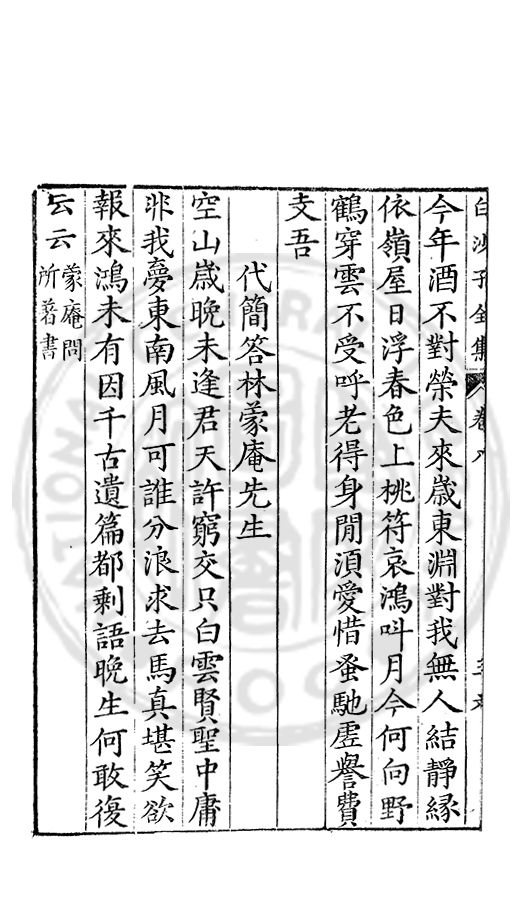 白沙子全集 卷八
今年酒不對榮夫來歲東淵對我無人結靜緣
依嶺屋日浮春色上桃符哀鴻叫月今何向野
鶴穿雲不受呼老得身閒須愛惜蚤馳虛譽費
支吾
代簡答林蒙庵先生
空山歲晚未逢君天許窮交只白雲賢聖中庸
非我夢東南風月可誰分浪求去馬真堪笑欲
報來鴻未有因千古遺篇都剩語晚生何敢復
云云
蒙庵問
所著書